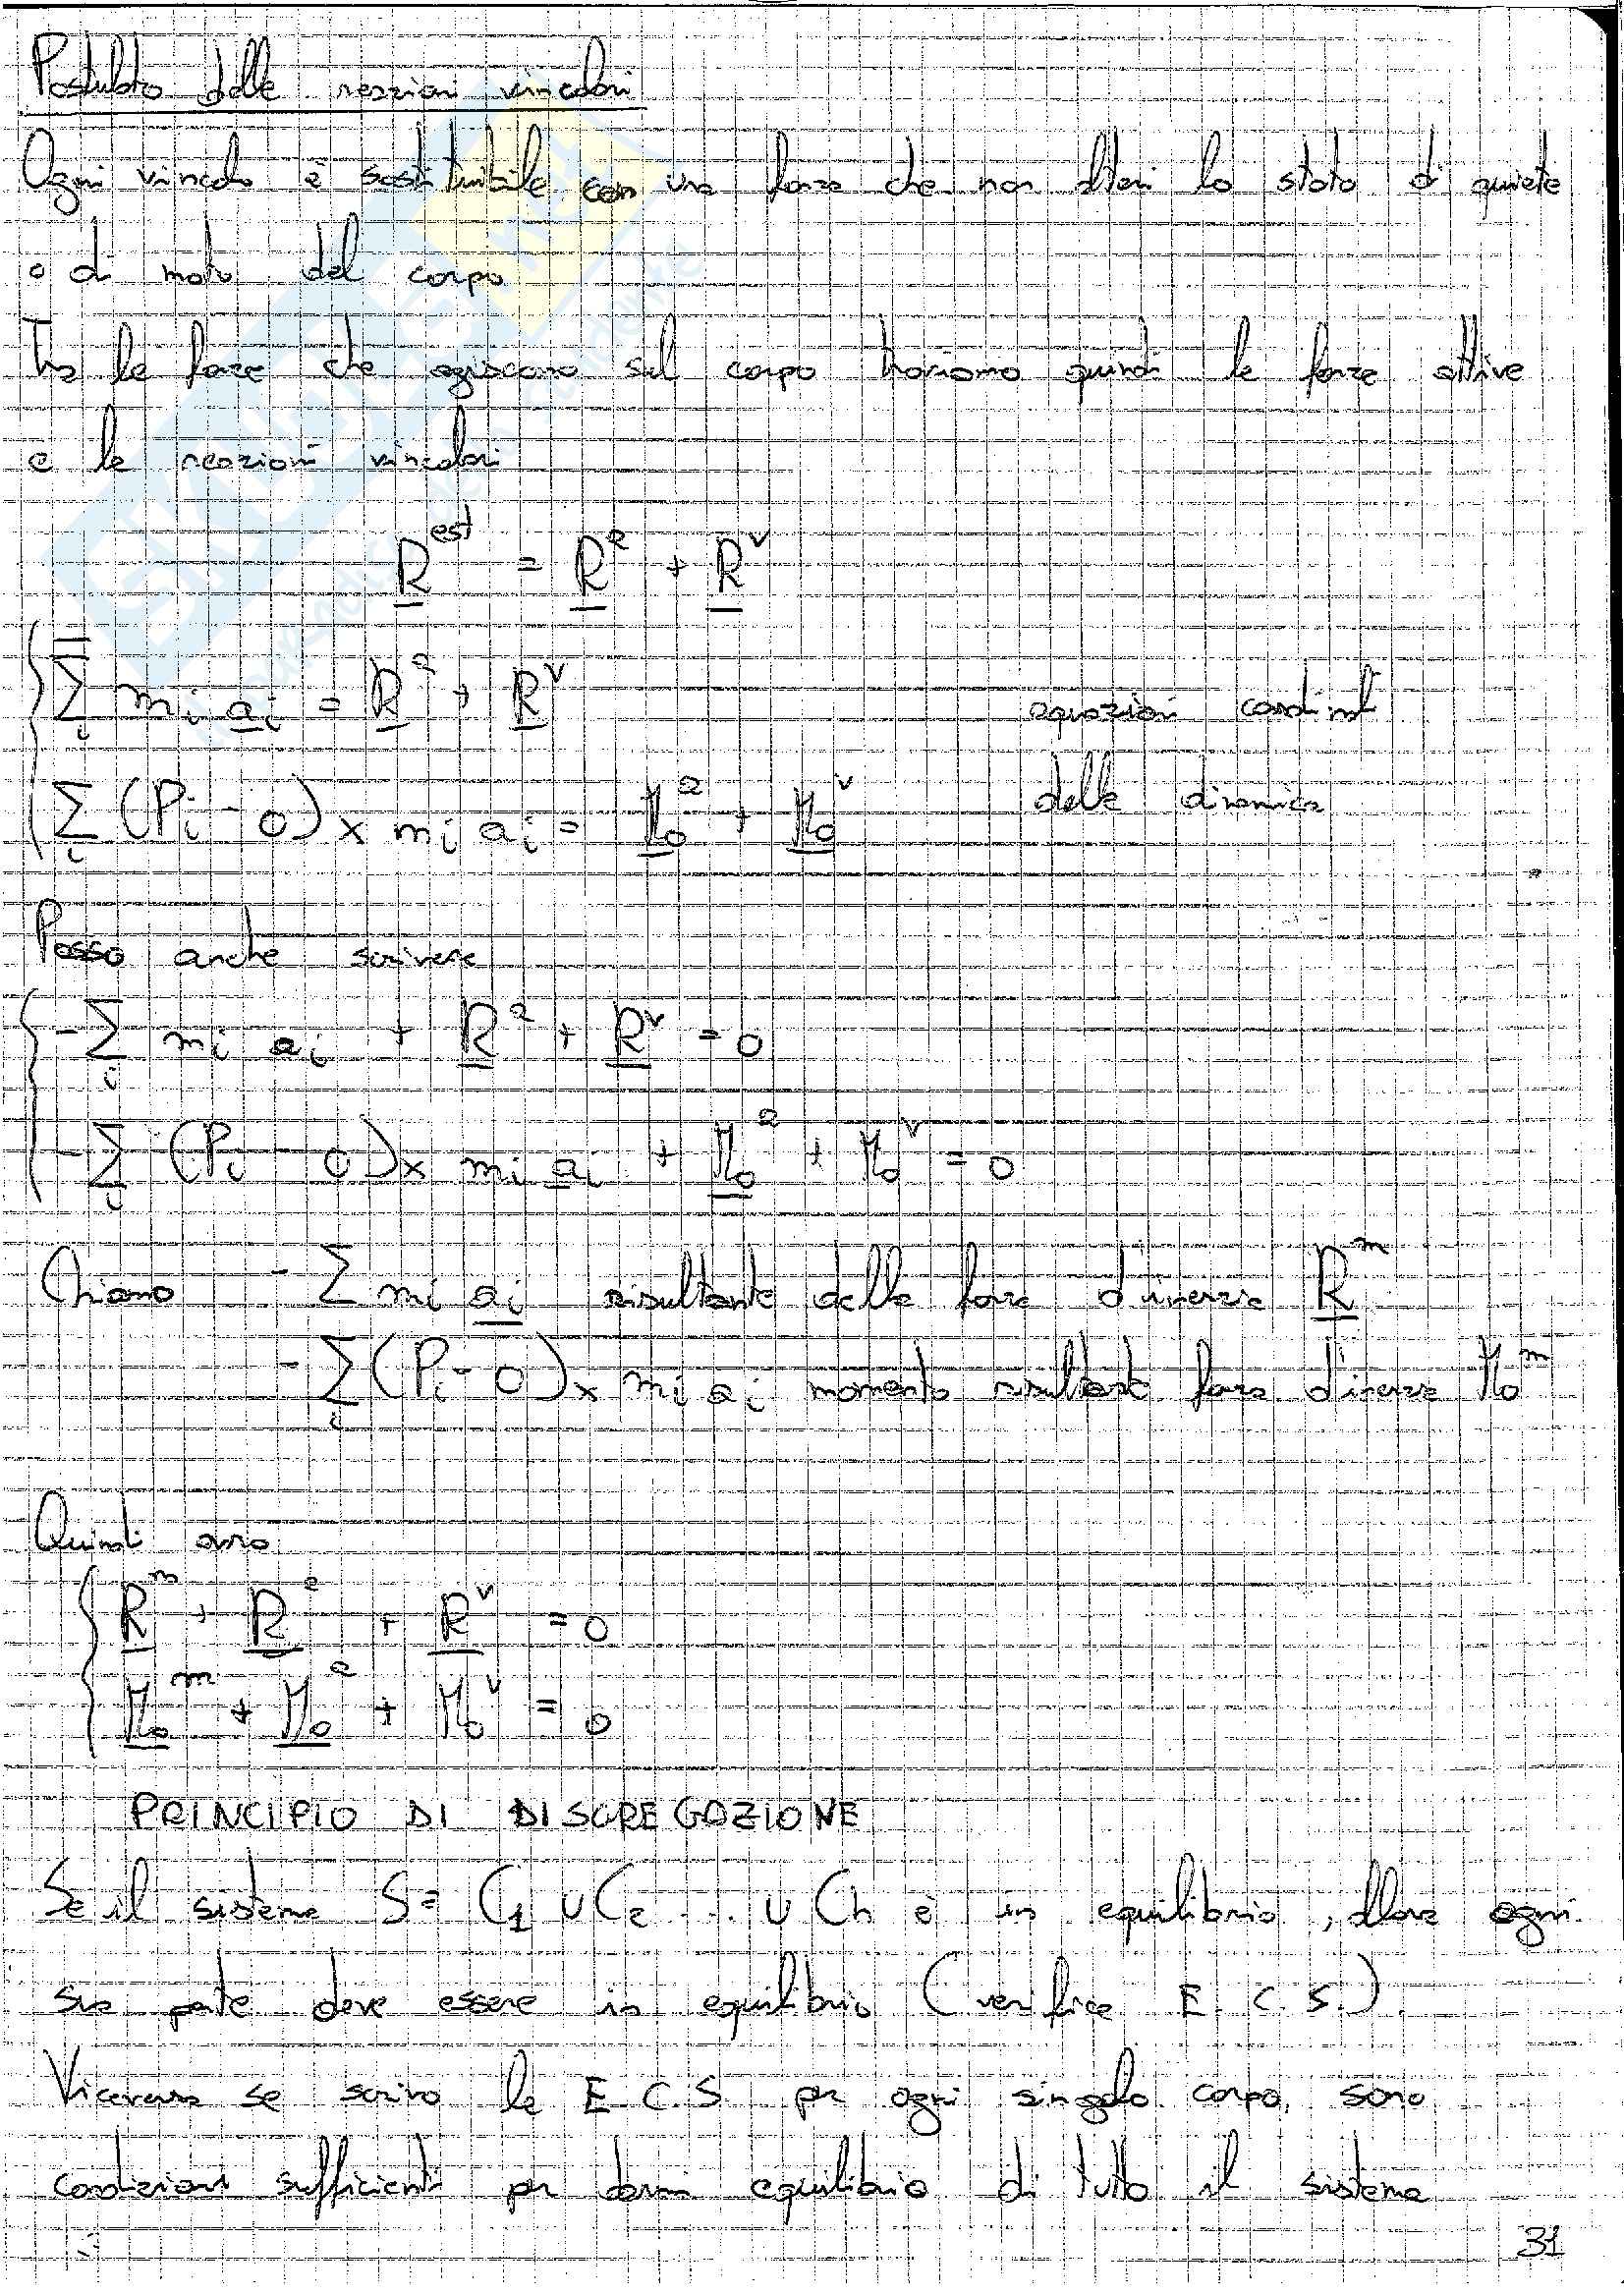 Postulato delle reazioni vincolari
Ogni vincolo è sostituibile con una forza che non alteri lo stato di quiete
o di moto del corpo
Tra le forze che agiscono sul corpo troviamo quindi le forze attive
e le reazioni vincolari
R^est = R^a + R^v
∑_i m_i a_i = R^a + R^v equazioni cardinali
∑_i (P_i - O) x m_i a_i = M_o^a + M_o^v delle dinamica
Posso anche scrivere
-∑_i m_i a_i + R^a + R^v = 0
-∑_i (P_i - O) x m_i a_i + M_o^a + M_o^v = 0
Chiamo -∑ m_i a_i risultante delle forze d'inerzia R^m
-∑_i (P_i - O) x m_i a_i momento risultante forze d'inerzia M_o^m
Quindi avrò
R^m + R^a + R^v = 0
M_o^m + M_o^a + M_o^v = 0
PRINCIPIO DI DISGREGAZIONE
Se il sistema S = C_1 ∪ C_2 ... ∪ C_n è in equilibrio, allora ogni
sua parte deve essere in equilibrio (verifica E.C.S.)
Viceversa se scrivo le E.C.S. per ogni singolo corpo, sono
condizioni sufficienti per darmi equilibrio di tutto il sistema
31